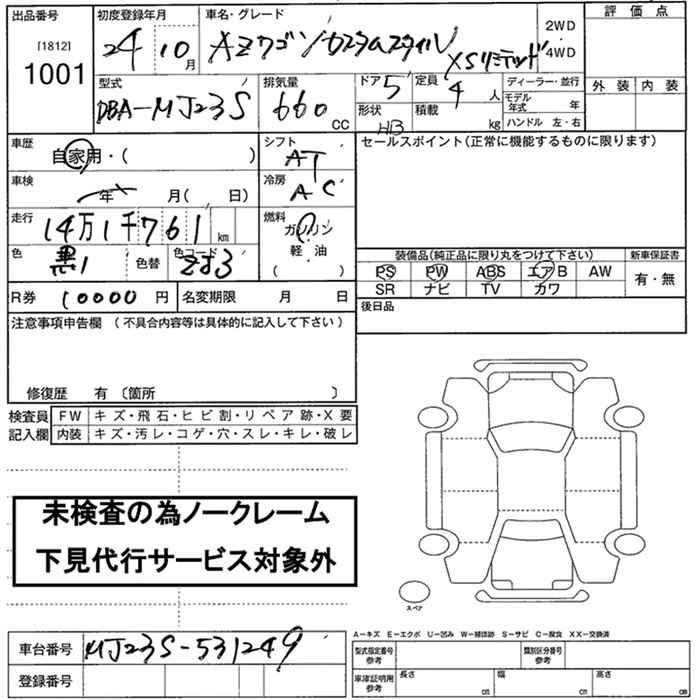 出品番号
[1812]
1001
初度登録年月
24 10月
車名・グレード
AZワゴン カスタムスタイル
XSリミテッド
2WD
・
4WD
評価点
外装 内装
型式
DBA-MJ23S
排気量
660 CC
ドア 5
形状 HB
定員 4人
積載 kg
ディーラー・並行
モデル年式 年
ハンドル 左・右
車歴
自家用・( )
車検
年 月( 日)
走行
14万1千761 km
色
黒1
色替
色コード
ZJ3
シフト
AT
冷房
AC
燃料
ガソリン
軽・油
( )
セールスポイント(正常に機能するものに限ります)
装備品(純正品に限り丸をつけて下さい)
PS PW ABS エアB AW
SR ナビ TV カワ
新車保証書
有・無
R券 10000円
名変期限 月 日
後日品
注意事項申告欄 (不具合内容等は具体的に記入して下さい)
修復歴 有 〔箇所 〕
検査員
記入欄
FW キズ・飛石・ヒビ割・リペア跡・X要
内装 キズ・汚レ・コゲ・穴・スレ・キレ・破レ
未検査の為ノークレーム
下見代行サービス対象外
スペア
A-キズ E-エクボ U-凹み W-補修跡 S-サビ C-腐食 XX-交換済
車台番号 MJ23S-531249
登録番号
型式指定番号
参考
類別区分番号
参考
車庫証明用
参考
長さ cm
幅 cm
高さ cm